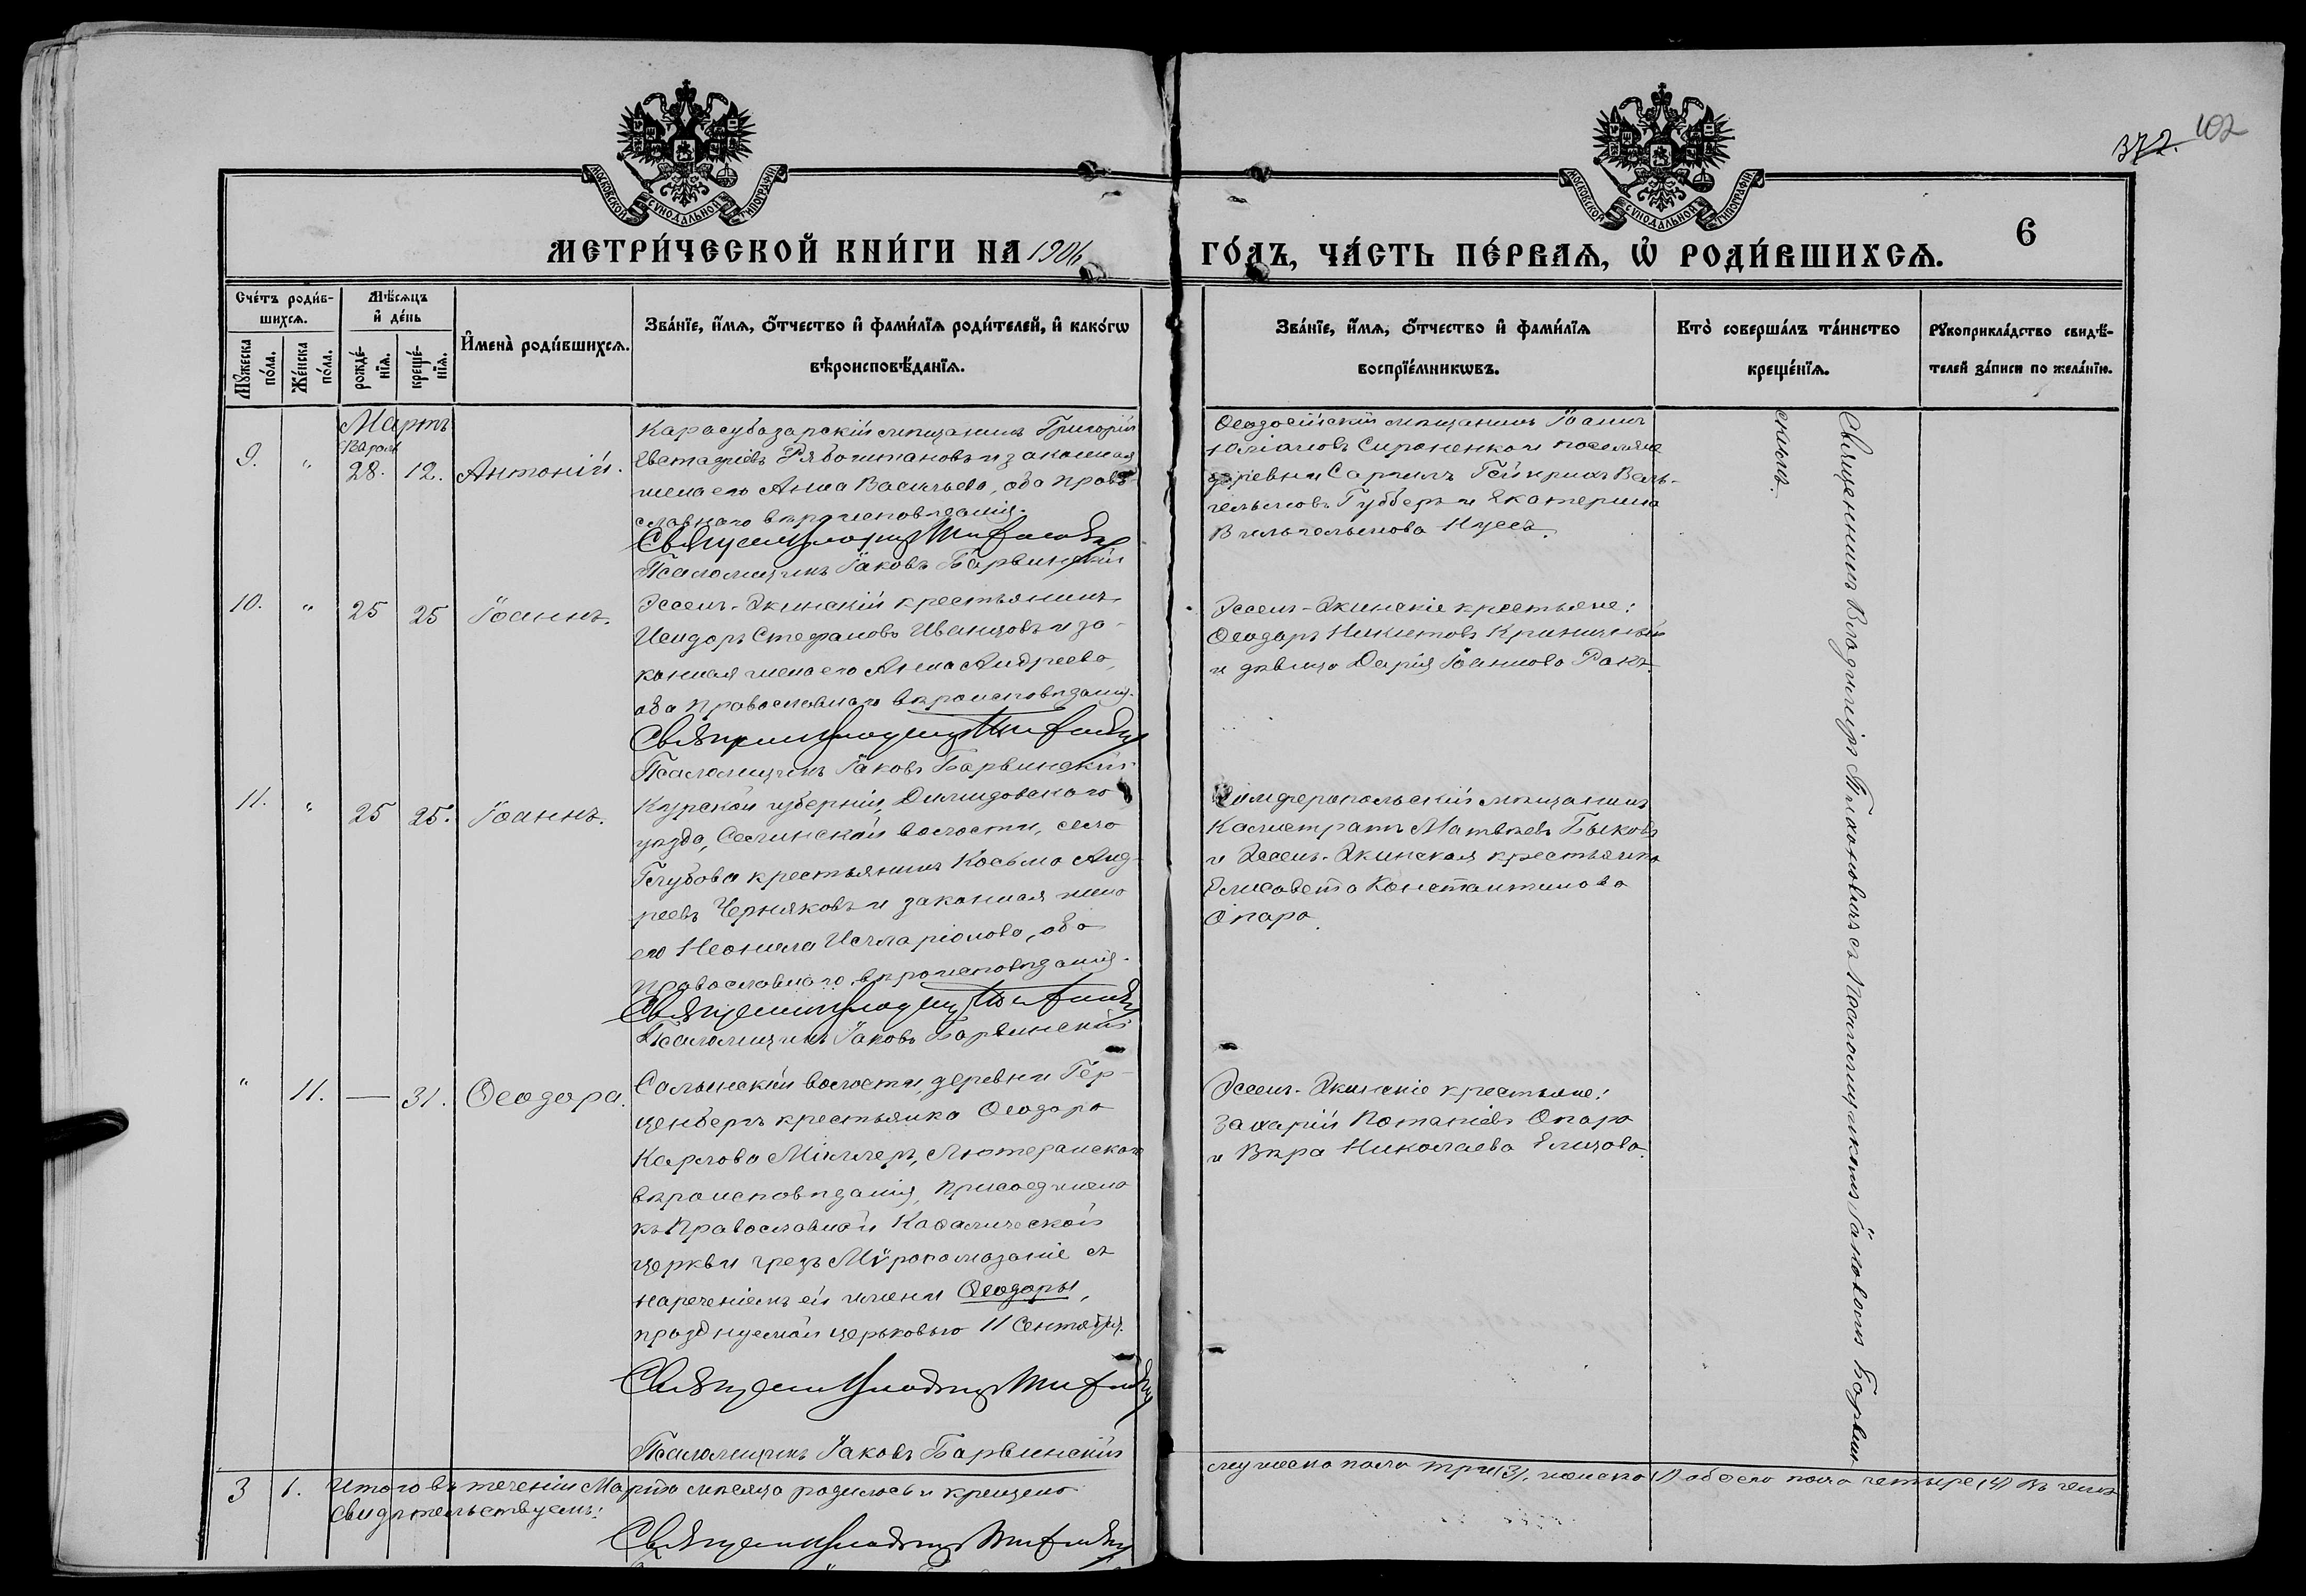 372. 102
МОСКОВСКОЙ СѴНОДАЛЬНОЙ ТИПОГРАФІИ
МОСКОВСКОЙ СѴНОДАЛЬНОЙ ТИПОГРАФІИ
МЕТРИ́ЧЕСКОЙ КНИ́ГИ НА 1906
ГО́ДЪ, ЧА́СТЬ ПЕ́РВАѦ, Ѡ РОДИ́ВШИХСѦ.
6
Сче́тъ роди́в-
шихсѧ.
Мꙋ́жеска
по́ла.
Же́нска
по́ла.
Мѣ́сѧцъ
и҆ де́нь
рожде́-
нїѧ.
креще́-
нїѧ.
И҆мена̀ роди́вшихсѧ.
Зва́нїе, и҆́мѧ, ѻ҆́тчество и҆ фами́лїѧ роди́телей, и҆ како́гѡ
вѣроисповѣ́данїѧ.
Зва́нїе, и҆́мѧ, ѻ҆́тчество и҆ фами́лїѧ
воспрїе́мникѡвъ.
Кто̀ соверша́лъ та́инство
креще́нїѧ.
Рꙋкоприкла́дство свидѣ́-
телей за́писи по жела́нїю.
Мартъ
9. " 28. 12. Антоній.
Карасубазарскій мѣщанинъ Григорій
Евстафіевъ Рябоштановъ и законная
жена его Анна Васильева, оба право-
славнаго вѣроисповѣданія.
Священникъ Владимір
Псаломщикъ Іаковъ Барвинскій
Ѳеодосійскій мѣщанинъ Іоаннъ
Юліановъ Сироненко и поселяне
деревни Гейнрихъ Виль-
гельмовъ Губберъ и Екатерина
Вильгельмова Нуссъ.
10. " 25 25 Іоаннъ.
Эссенъ-Экинскій крестьянинъ
Исидоръ Стефановъ Иванцовъ и за-
конная жена его Анна Андреева,
оба православнаго вѣроисповѣданія.
Священникъ Владимір
Псаломщикъ Іаковъ Барвинскій
Эссенъ-Экинскіе крестьяне:
Ѳеодоръ Никитовъ Криничный
и дѣвица Дарія Іоаннова Ракъ.
11. " 25 25. Іоаннъ.
Курской губерніи, Дмитровского
уѣзда, Селинской волости, села
Глубова крестьянинъ Косьма Анд-
реевъ Черняковъ и законная жена
его Неонила Илларіонова, оба
православнаго вѣроисповѣданія.
Священникъ Владимір
Псаломщикъ Іаковъ Барвинскій
Симферопольскій мѣщанинъ
Калистратъ Матвѣевъ Быковъ
и Эссенъ-Экинская крестьянка
Елисавета Константинова
Опара.
" 11. — 31. Ѳеодора.
волости, деревни Гер-
ценбергъ крестьянка Ѳеодора
Карлова Миллеръ, Лютеранскаго
вѣроисповѣданія, присоединена
къ Православной Каѳолической
церкви чрезъ Мѵропомазаніе съ
нареченіемъ ей имени Ѳеодоры,
празднуемой церковью 11 Сентября.
Священникъ Владимір
Псаломщикъ Іаковъ Барвинскій
Эссенъ-Экинскіе крестьяне:
Захарій Потапіевъ Опара
и Вѣра Николаева Елизова.
Священникъ Владиміръ съ Псаломщикомъ Іаковомъ Барвин-
скимъ.
3 1. Итого въ теченіи Марта мѣсяца родилось и крещено
мужеска пола три (3), женска (1) обоего пола четыре (4) въ чемъ
свидѣтельствуемъ:
Священникъ Владимір